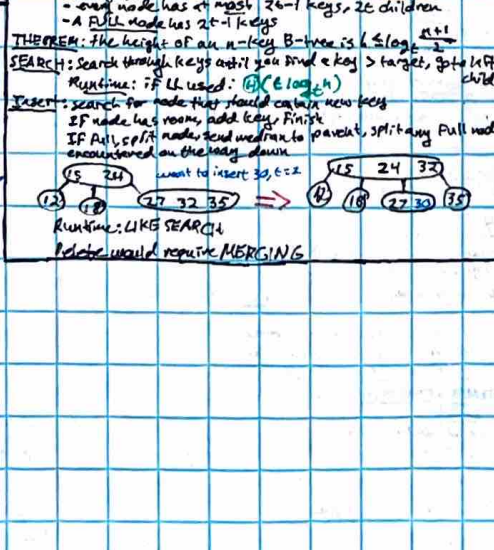 - every node has at most 2t-1 keys, 2t children
- A FULL node has 2t-1 keys
THEOREM: the height of an n-key B-tree is h ≤ log_t (n+1)/2
SEARCH: search through keys until you find a key > target, go to left child
Runtime: if LL used: Θ(t log_t n)
Insert: search for node that should contain new key
IF node has room, add key, finish
IF full, split node, send median to parent, split any full node
encountered on the way down
15 24 want to insert 30, t=2 15 24 32
12 18 27 32 35 => 12 18 27 30 35
Runtime: LIKE SEARCH
Delete would require MERGING